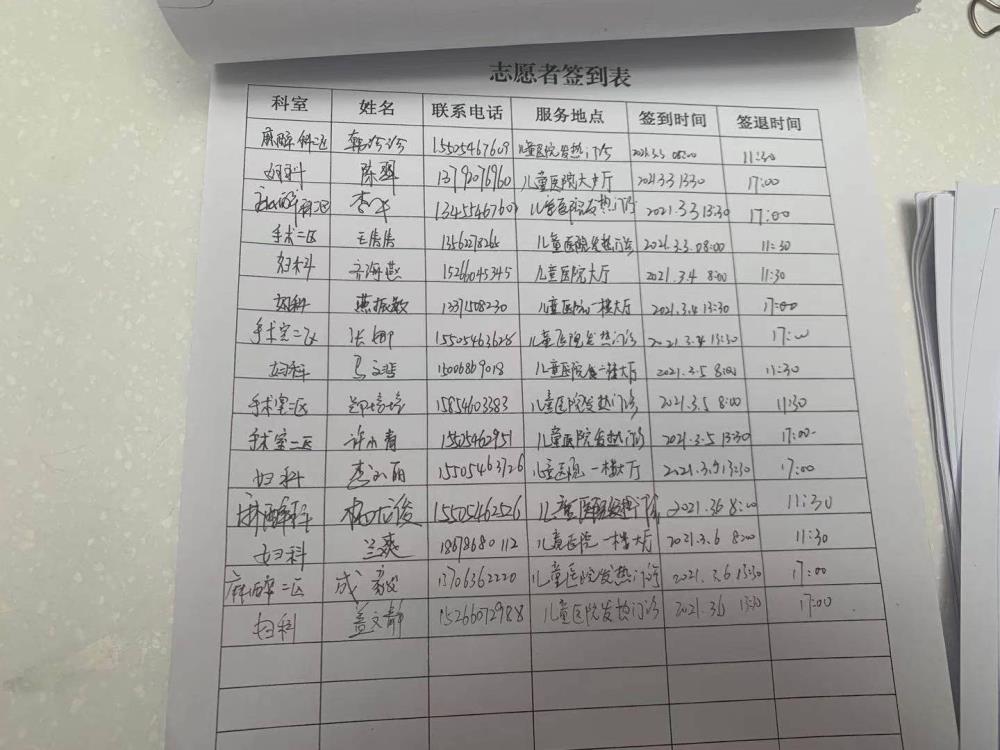 志愿者签到表
科室 姓名 联系电话 服务地点 签到时间 签退时间
麻醉科二区 韩汐汐 15505467609 儿童医院发热门诊 2021.3.3. 08:00 11:30
妇科 陈翠 13792076960 儿童医院大厅 2021.3.3 13:30 17:00
麻醉科二区 李华 儿童医院发热门诊 2021.3.3 13:30 17:00
手术二区 王倩倩 儿童医院发热门诊 2021.3.3. 08:00 11:30
妇科 齐海燕 15266045345 儿童医院大厅 2021.3.4 8:00 11:30
妇科 燕振敏 13371508230 儿童医院一楼大厅 2021.3.4 13:30 17:00
手术室二区 张娜 15505463628 儿童医院发热门诊 2021.3.4 13:30 17:00
妇科 15006869018 儿童医院 一楼大厅 2021.3.5 8:00 11:30
手术室二区 郭培培 15854603383 儿童医院发热门诊 2021.3.5 8:00 11:30
手术室二区 许小青 15505462951 儿童医院发热门诊 2021.3.5 13:30 17:00
妇科 李小丽 15505463726 儿童医院一楼大厅 2021.3.5 13:30 17:00
麻醉科 15505462526 儿童医院发热门诊 2021.3.6 8:00 11:30
妇科 兰爽 18678680112 儿童医院一楼大厅 2021.3.6 8:00 11:30
麻醉二区 成毅 13706362220 儿童医院发热门诊 2021.3.6 13:30 17:00
妇科 盖文静 15266072988 儿童医院发热门诊 2021.3.6 13:30 17:00